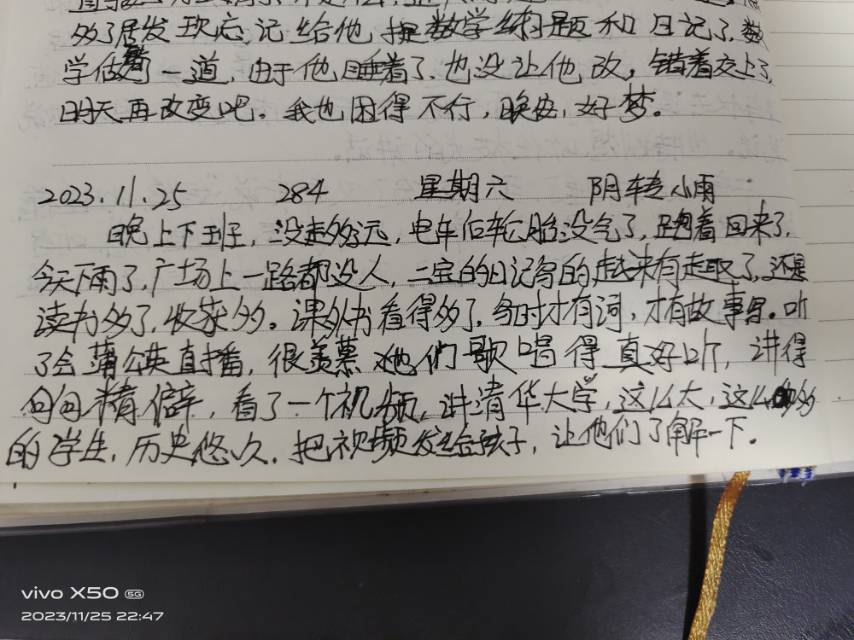 多了居发现后，记给他提数学练习题和日记了，数
学做着一道，由于他睡着了，也没让他改，错着交上了，
明天再改变吧。我也困得不行，晚安，好梦。
2023.11.25 284 星期六 阴转小雨
晚上下班，没走多远，电车后轮胎没气了，跑着回来了，
今天下雨了，广场上一路都没人，二宝的日记写的越来有走取了，还是
读书多了，收获多。课外书看得多了，写时才有词，才有故事写。听
了会蒲公英直播，很羡慕她们歌唱得真好听，讲得
句句精僻，看了一个视频，讲清华大学，这么大，这么多的
的学生，历史悠久，把视频发给孩子，让他们了解一下。
vivo X50 5G
2023/11/25 22:47